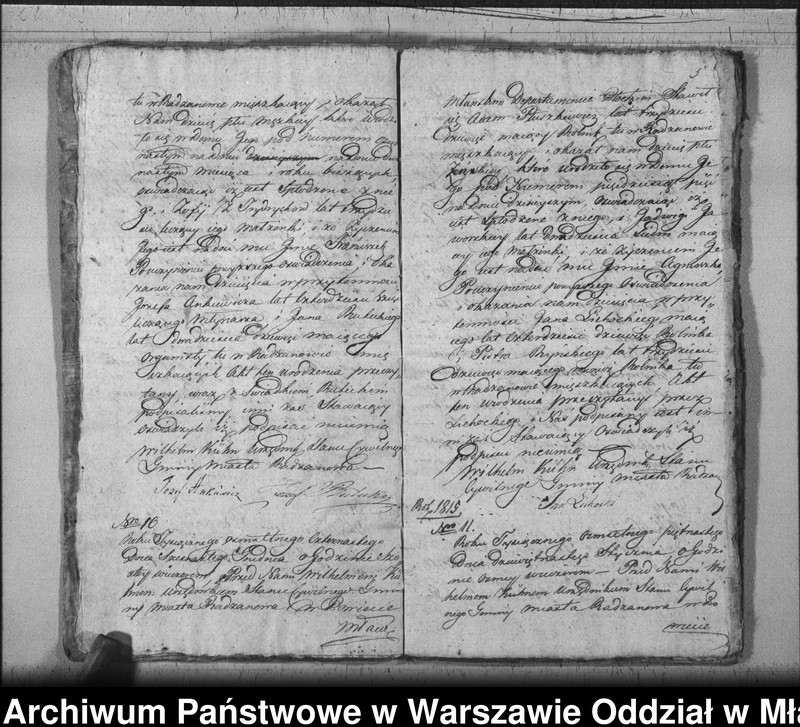 tu w Radzanowie mieszkaiący i okazał
Nam dziecię płci męzkiey które urodzi
ło się w domu Jego pod Numerem
nastym na dniu na dniu dwu
nastym miesiąca i roku bieżących,
oświadczaiąc iż iest spłodzone z nie
go, i Zofii z lat trzydzie
ści liczącey iego małżonki, i że życzeniem
iego iest nadać mu Jmie
Po uczynieniu powyższego oświadczenia i oka
zania nam dziecięcia w przytomności
Jozefa Ankiewicza lat czterdzieści
liczącego Młynarza i Jana
lat dwadzieścia dziewięć maiącego
Organisty, tu w Radzanowie mie
szkaiących. Akt ten urodzenia przeczy
tany, wraz z Swiadkiem
podpisaliśmy, inni zaś Stawaiący
oświadczyli iż podpisać nieumią
Wilhelm Kühn Urzędnik Stanu Cywilnego
Gminy miasta Radzanowa
Nro 10
Roku Tysiącznego osmsetnego czternastego
Dnia Grudnia o Godzinie
wieczorem Przed Nami Wilhelmem Kü
hnem Urzędnikiem Stanu Cywilnego Gmi
ny miasta Radzanowa w Powiecie
Mław
5
Mławskim Departamencie Płockim Stawił
się Adam lat trzydzieści
Dziewięć maiący Rolnik tu w Radzanowie
mieszkaiący, i okazał nam dziecię płci
Zenskiey, które urodziło się w domu Je
go pod Numerem pięćdziesiąt pięć
na dniu dzisieyszym, oświadczaiąc iż
iest spłodzone z niego, i Jadwigi
lat dwadzieścia siedm maią
cey iego małżonki, i że życzeniem Je
go iest nadać mu Jmie Agnieszka
Po uczynieniu powyższego oświadczenia
i okazania nam dziecięcia w przy„
tomności Jana Lichockiego maią
cego lat czterdzieści dziewięć Rolnika
i Piotra lat trzydzieści
maiącego Rolnika tu
w Radzanowie mieszkaiących. Akt
ten urodzenia przeczytany przez
Lichockiego i Nas podpisany iest in
ni zaś Stawaiący Oświadczyli iż
podpisu nieumią
Wilhelm Kühn Urzędnik Stanu
Cywilnego Gminy miasta Radza
Rok 1815
Nro 11.
Roku Tysiącznego osmsetnego piętnastego
Dnia Dziewiętnastego Stycznia o Godzi
nie osmey wieczorem — Przed Nami Wil
helmem Kühnem Urzędnikiem Stanu Cywil
nego Gminy miasta Radzanowa w Po
wiecie
Archiwum Państwowe w Warszawie Oddział w Mł